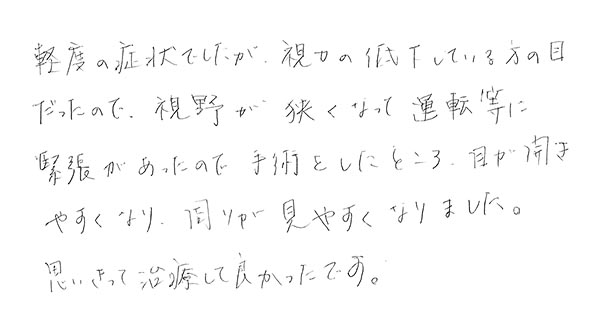 軽度の症状でしたが、視力の低下している方の目
だったので、視野が狭くなって運転等に
緊張があったので手術をしたところ、目が開き
やすくなり、周りが見やすくなりました。
思いきって治療して良かったです。